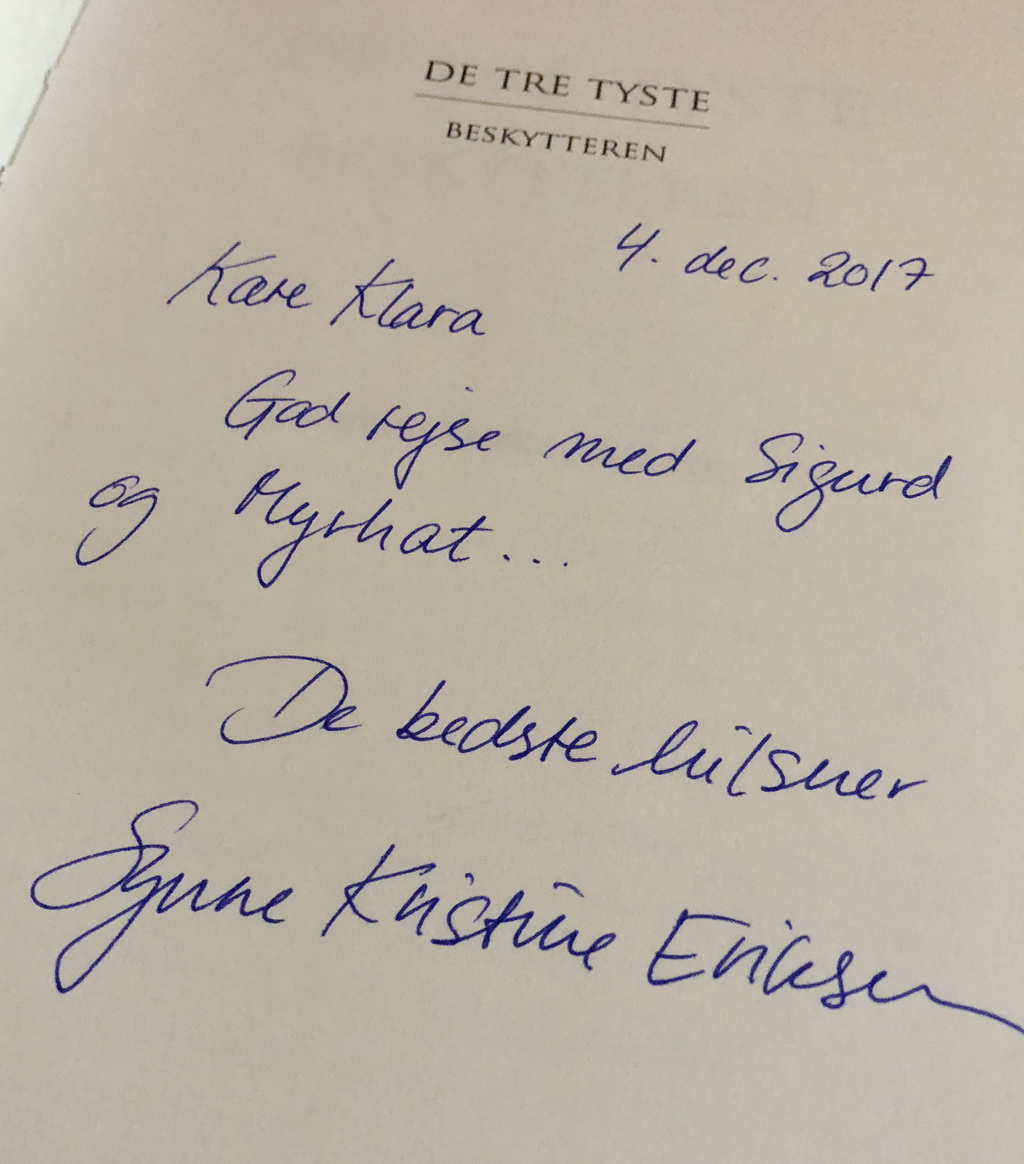 DE TRE TYSTE
BESKYTTEREN
4. dec. 2017
Kære Klara
God rejse med Sigurd
og Myrhat...
De bedste hilsner
Synne Kristine Eriksen